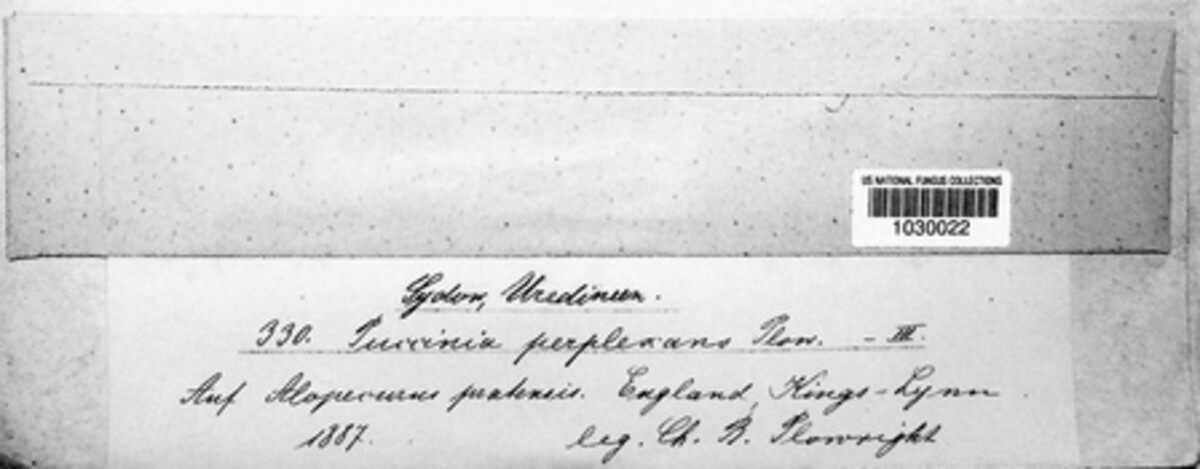 US NATIONAL FUNGUS COLLECTIONS
1030022
Sydow, Uredineen.
330. Puccinia perplexans Plow. - III.
Auf Alopecurus pratensis. England, Kings-Lynn
1887. leg. Ch. B. Plowright